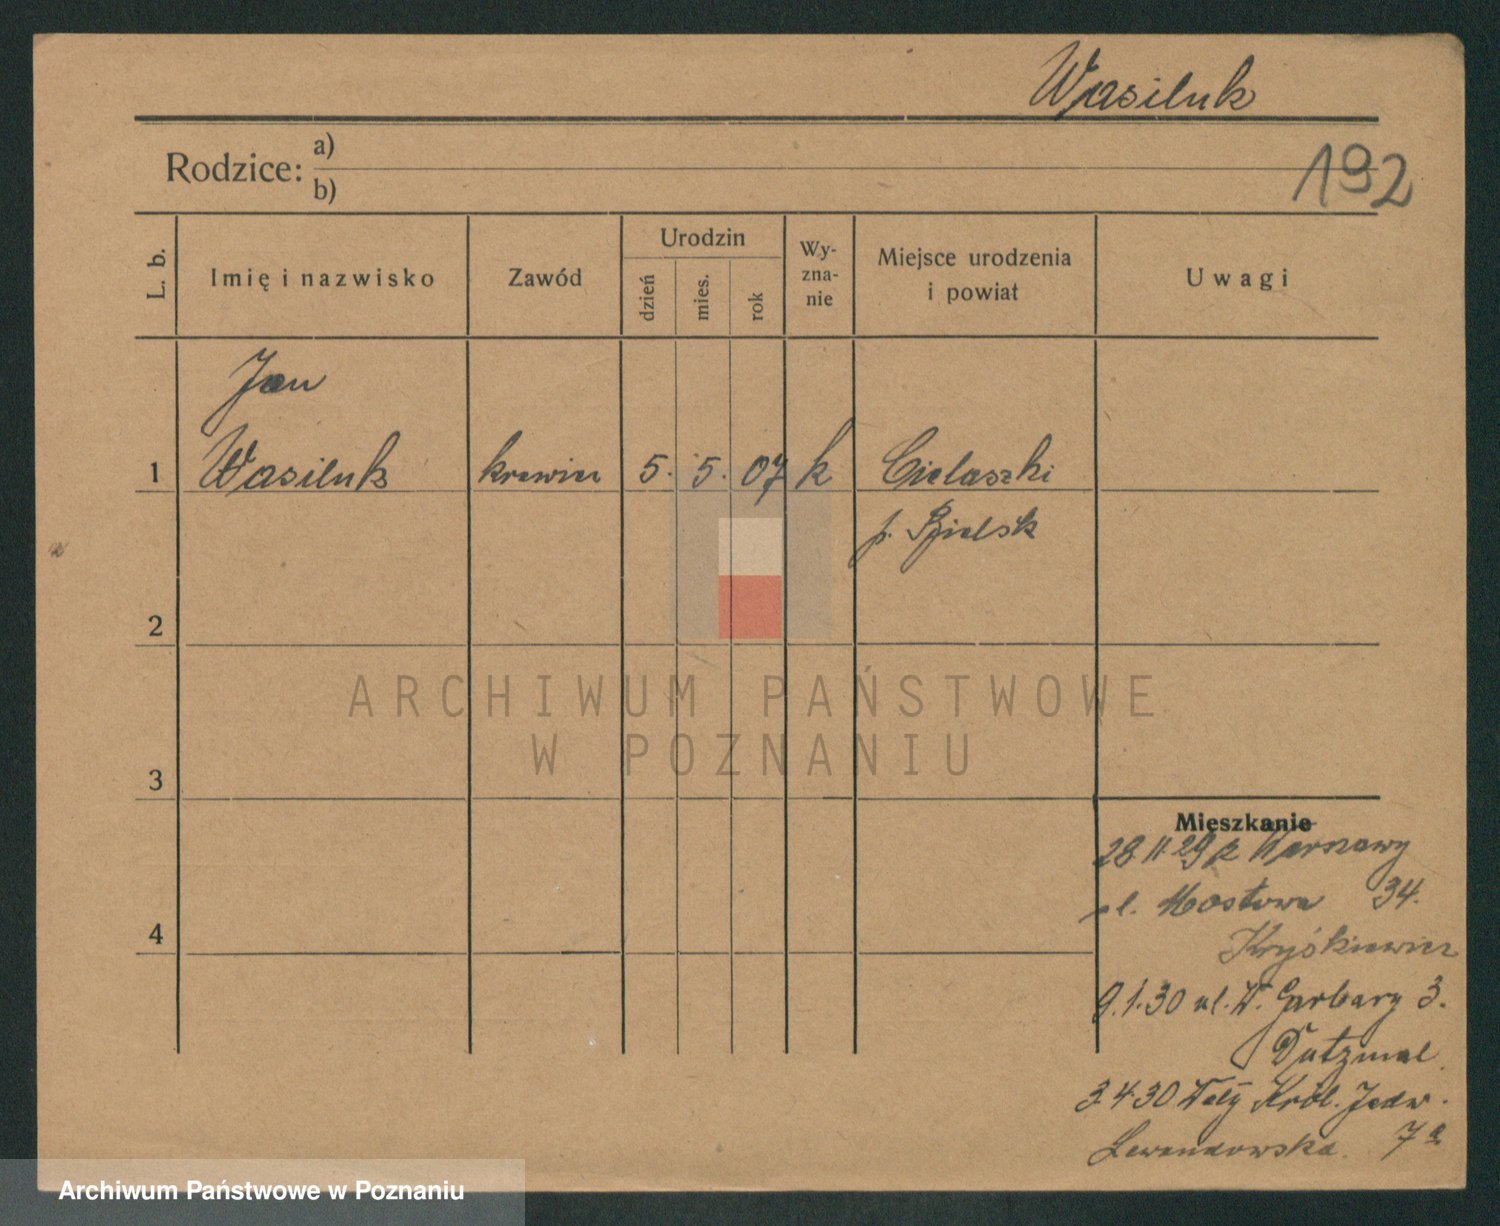 Wasiluk
192
Rodzice: a)
b)
L. b.
Imię i nazwisko
Zawód
Urodzin
dzień
mies.
rok
Wy-
zna-
nie
Miejsce urodzenia
i powiat
Uwagi
Jan
1 Wasiluk krawiec 5. 5. 07 k Cieluszki
p. Bielsk
2
ARCHIWUM PAŃSTWOWE
W POZNANIU
3
Mieszkanie
28 11 29 z Warszawy
ul. Mostowa 34.
4
Kryśkiewicz
9.1.30 ul. W. Garbary 3.
3.4.30 Wały Król. Jadw.
Lewandowska. 7a
Archiwum Państwowe w Poznaniu